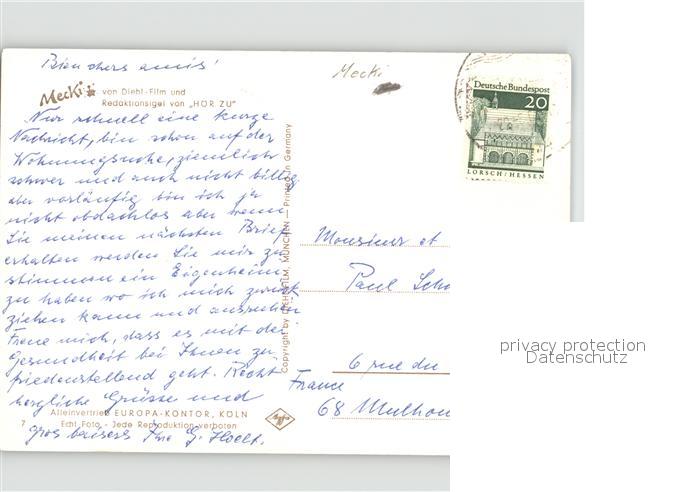 Bien chers amis!
Mecki
Mecki von Diehl-Film und
Redaktionsigel von „HÖR ZU"
Nur schnell eine kurze
Nachricht, bin schon auf der
Wohnungssuche, ziemlich
schwer und auch nicht billig
aber vorläufig bin ich ja
nicht obdachlos aber wenn
Sie meinen nächsten Brief
erhalten werden Sie mir zu
stimmen ein Eigenheim
zu haben wo ich mich zurück
ziehen kann und ausruhen
Freue mich, dass es mit der
Gesundheit bei Ihnen zu
friedenstellend geht. Recht
herzliche Grüsse und
Alleinvertrieb EUROPA-KONTOR, KÖLN
7 Echt Foto - Jede Reproduktion verboten
gros baisers Ihre G.
Copyright by DIEHL-FILM, MÜNCHEN — Printed in Germany
Agfa
Deutsche Bundespost
20
LORSCH/HESSEN
Monsieur et
Paul
6 rue du
France
68 Mulhou
privacy protection
Datenschutz